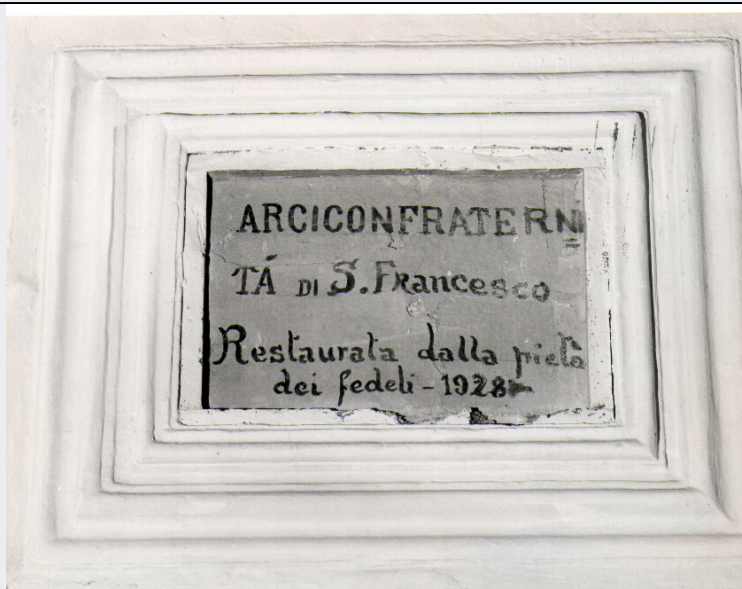 ARCICONFRATERNI=
TÁ DI S. Francesco
Restaurata dalla pietà
dei fedeli - 1928 -